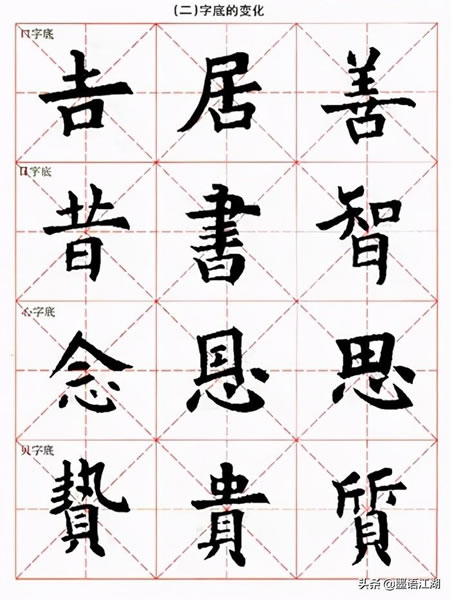 (二)字底的变化
口字底
吉 居 善
日字底
昔 書 智
心字底
念 恩 思
贝字底
贄 貴 質
头条 @墨语江湖